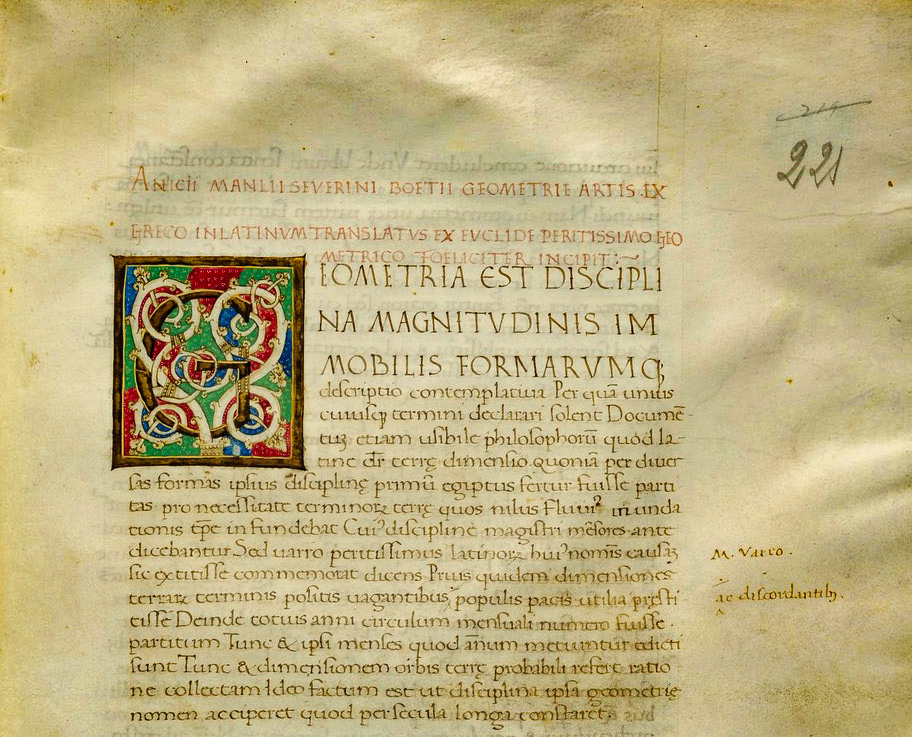 214
221
ANICII MANLII SEVERINI BOETII GEOMETRIE ARTIS EX
GRECO IN LATINVM TRANSLATVS EX EVCLIDE PERITISSIMO GEO
METRICO FOELICITER INCIPIT:~
GEOMETRIA EST DISCIPLI
NA MAGNITVDINIS IM
MOBILIS FORMARVMQ;
descriptio contemplatiua Per quā unius
cuiusq; termini declarari solent Documē-
tuꝫ etiam uisibile philosophorū quod la-
tine dr̄ terrę dimensio. quoniā per diuer
sas formas ipsius disciplinę primū egiptus fertur fuisse parti
tas pro necessitate terminoꝝ terrę quos nilus fluuiꝰ inunda
tionis tp̄e infundebat Cuiꝰ disciplinę magistri mēsores ante
dicebantur Sed uarro peritissimus latinoꝝ huiꝰ nomīs causaꝫ
sic extitisse commemorat dicens Prius quidem dimensiones
terrarꝫ terminis positis uagantibus populis pacis utilia pręsti
tisse Deinde totius anni circulum mensuali numero fuisse.
partitum Tunc & ipsi menses quod annum metiuntur edicti
sunt Tunc & dimensionem orbis terrę probabili refert ratio
ne collectam Ideo factum est ut disciplina ipsa geometrię
nomen acciperet quod per secula longa constaret.
M. Varro.
ac discordantibꝫ.